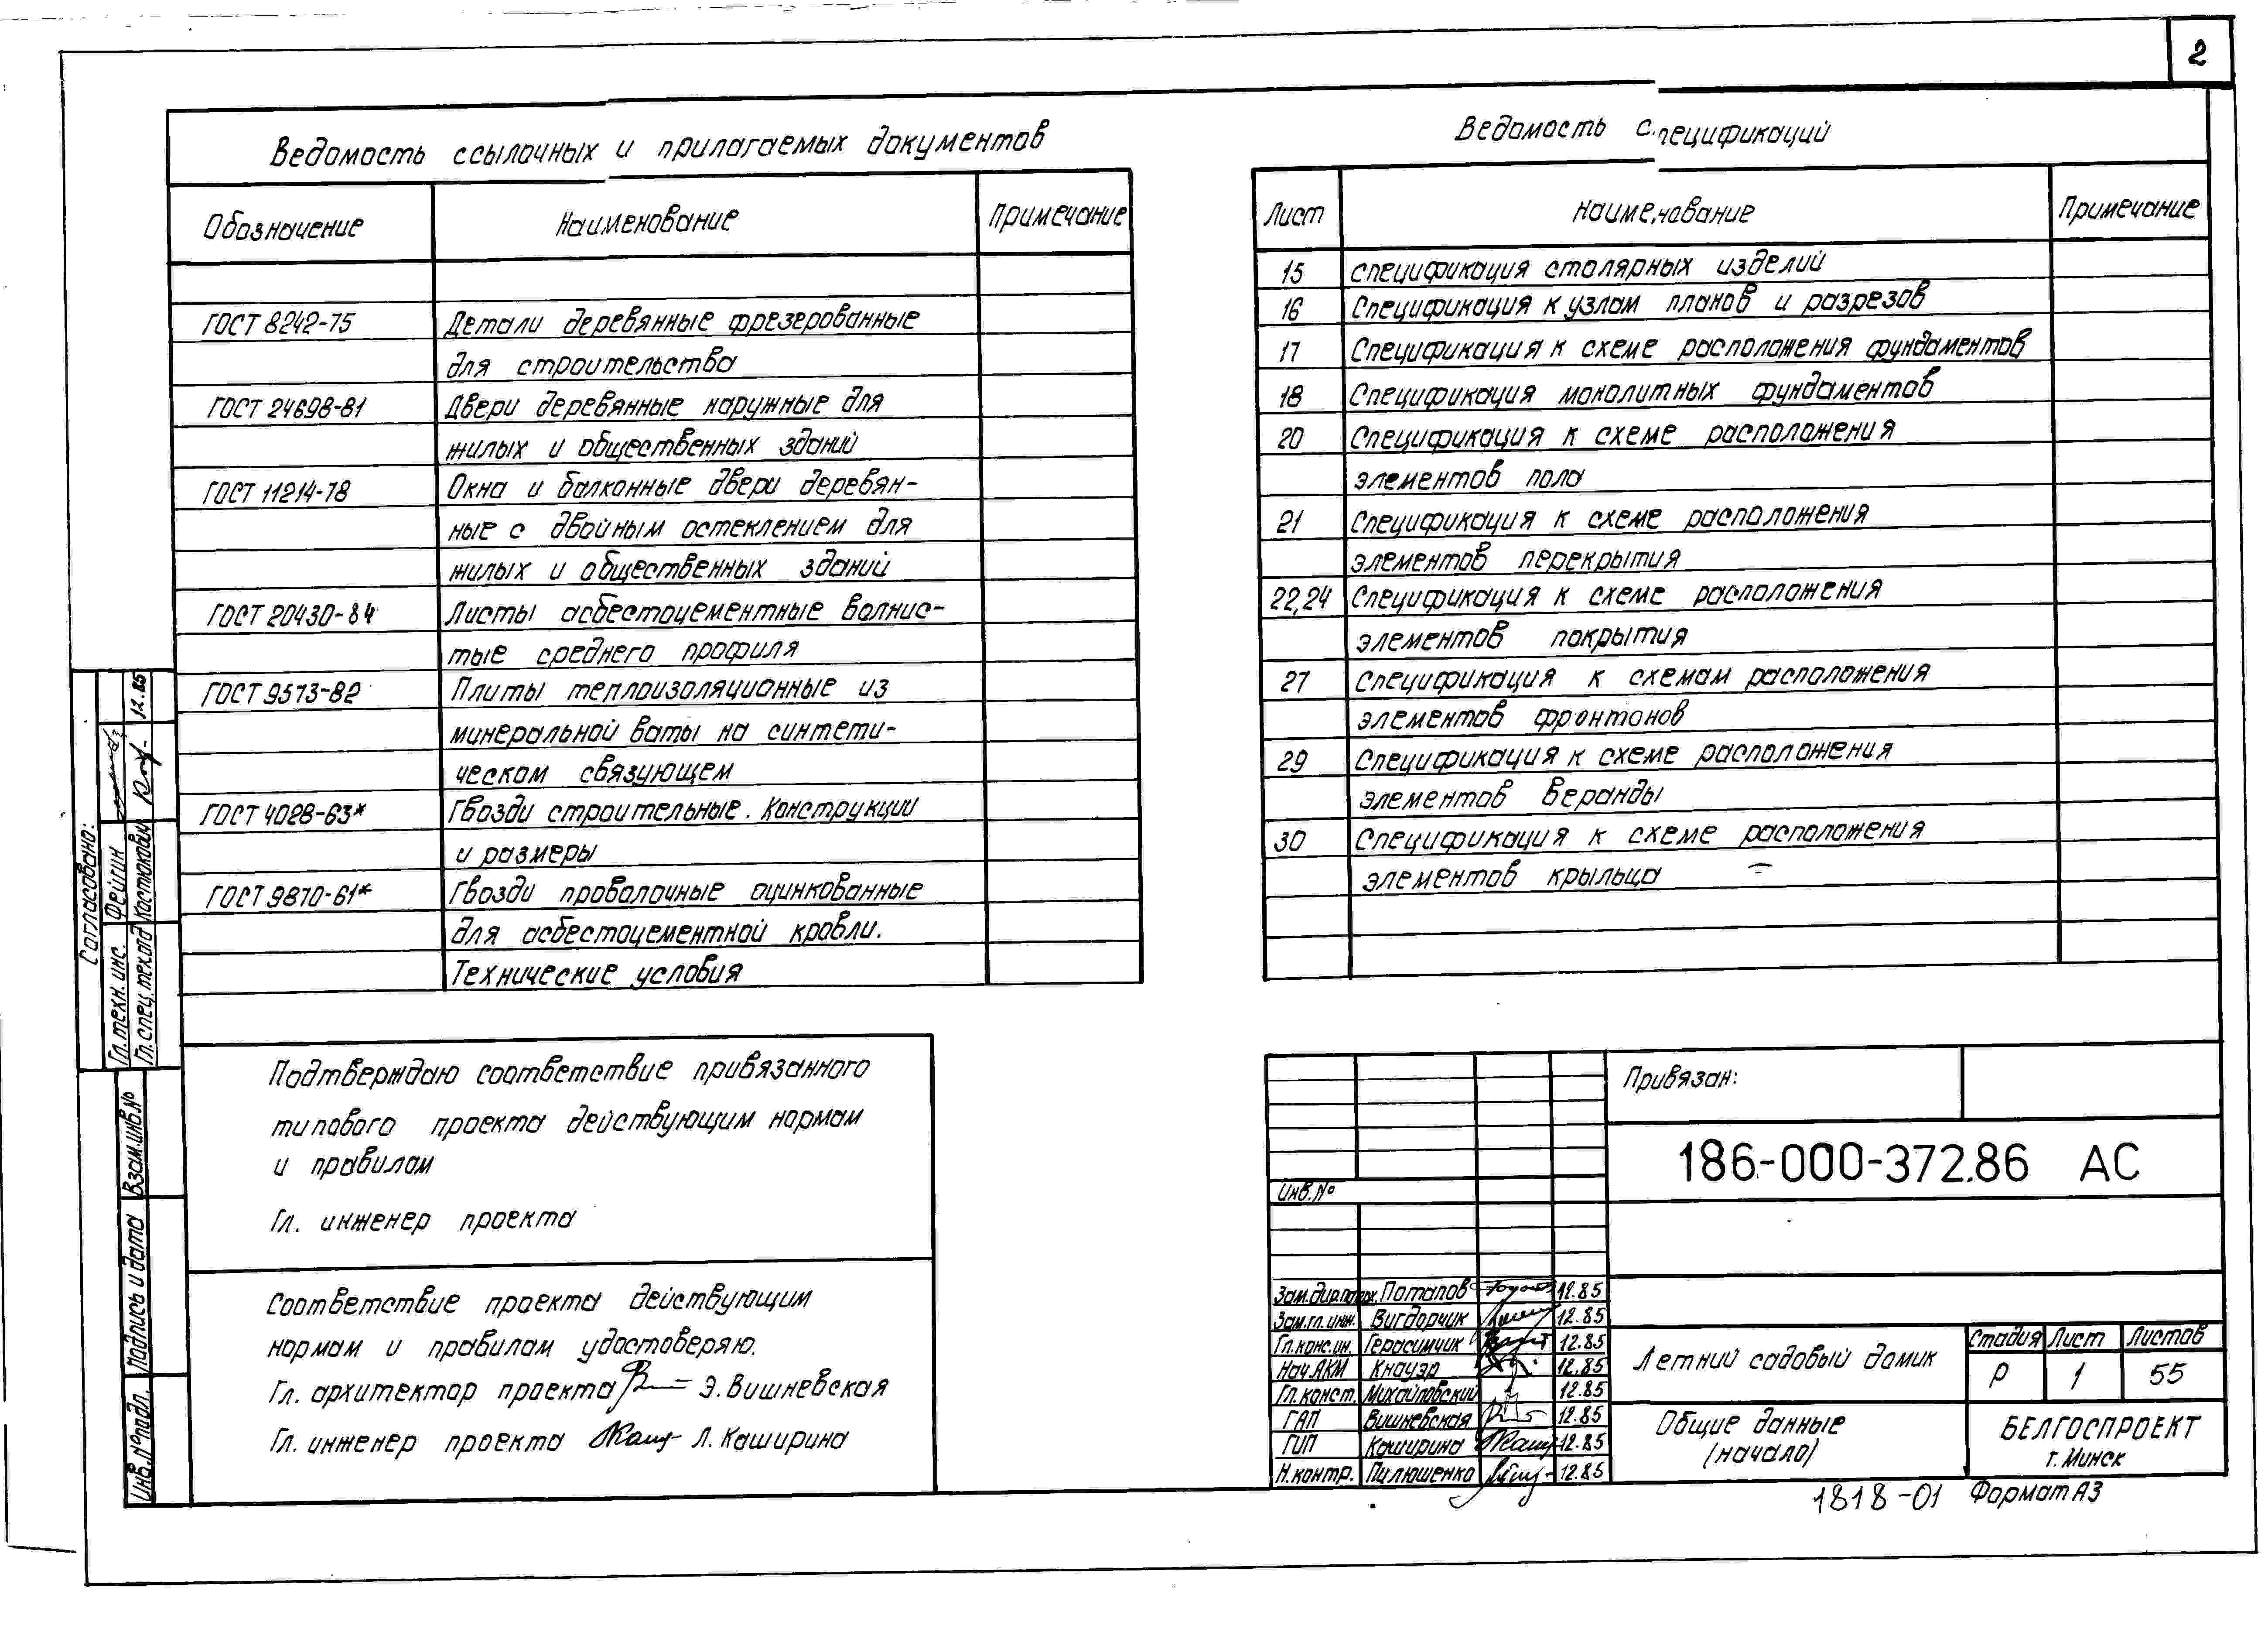 2
Ведомость ссылочных и прилагаемых документов
Обозначение Наименование Примечание
ГОСТ 8242-75 Детали деревянные фрезерованные
для строительства
ГОСТ 24698-81 Двери деревянные наружные для
жилых и общественных зданий
ГОСТ 11214-78 Окна и балконные двери деревян-
ные с двойным остеклением для
жилых и общественных зданий
ГОСТ 20430-84 Листы асбестоцементные волнис-
тые среднего профиля
ГОСТ 9573-82 Плиты теплоизоляционные из
минеральной ваты на синтети-
ческом связующем
ГОСТ 4028-63* Гвозди строительные. Конструкции
и размеры
ГОСТ 9870-61* Гвозди проволочные оцинкованные
для асбестоцементной кровли.
Технические условия
Ведомость спецификаций
Лист Наименование Примечание
15 Спецификация столярных изделий
16 Спецификация к узлам планов и разрезов
17 Спецификация к схеме расположения фундаментов
18 Спецификация монолитных фундаментов
20 Спецификация к схеме расположения
элементов пола
21 Спецификация к схеме расположения
элементов перекрытия
22,24 Спецификация к схеме расположения
элементов покрытия
27 Спецификация к схемам расположения
элементов фронтонов
29 Спецификация к схеме расположения
элементов веранды
30 Спецификация к схеме расположения
элементов крыльца
Согласовано:
Гл. техн. инс. Фейгин
Гл. спец. техотд Костюкович 12.85
Взам.инв.№
Подпись и дата
Инв.№подл.
Подтверждаю соответствие привязанного
типового проекта действующим нормам
и правилам
Гл. инженер проекта
Соответствие проекта действующим
нормам и правилам удостоверяю.
Гл. архитектор проекта Э. Вишневская
Гл. инженер проекта Л. Каширина
Привязан:
186-000-372.86 АС
Инв.№
Зам.дир. Потапов 12.85
Зам.гл.инж. Вигдорчик 12.85
Гл.конс.ин. Герасимчик 12.85
Нач.АКМ Кнауэр 12.85
Гл.конст. Михайловский 12.85
ГАП Вишневская 12.85
ГИП Каширина 12.85
Н.контр. Пилюшенко 12.85
Летний садовый домик
Стадия Лист Листов
Р 1 55
Общие данные
(начало)
БЕЛГОСПРОЕКТ
г. Минск
1818-01 Формат А3